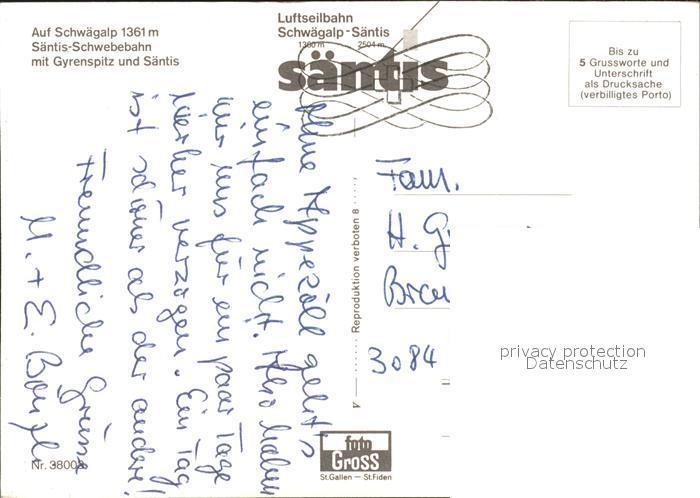 Auf Schwägalp 1361 m
Säntis-Schwebebahn
mit Gyrenspitz und Säntis
Luftseilbahn
Schwägalp-Säntis
1360 m 2504 m
säntis
Bis zu
5 Grussworte und
Unterschrift
als Drucksache
(verbilligtes Porto)
Ohne Appezöll geht's
einfach nicht. Also haben
wir uns für ein paar Tage
hierher verzogen. Ein Tag
ist schöner als der andere!
Freundliche Grüsse
M. + E.
Reproduktion verboten 8
Fam.
H. G
3084
privacy protection
Datenschutz
foto
Gross
St.Gallen — St.Fiden
Nr. 3800